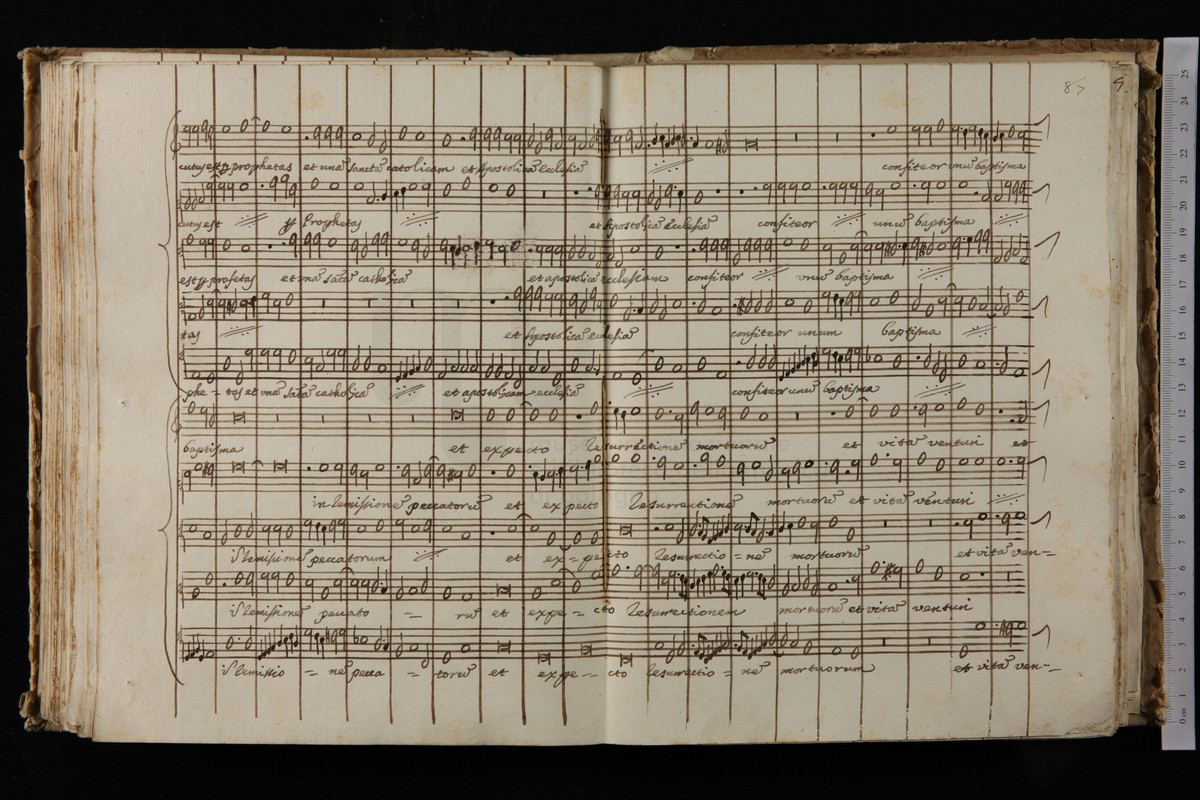 87 9.
cutus est p prophetas et unã sanctã catolicam et Apostolicã Ecclesiã confiteor unũ baptisma
cutus est p Prophetas et Apostolicã Ecclesiã confiteor unũ baptisma
est p profetas et unã sãtã catholicã et apostolicã ecclesiam confiteor unũ baptisma
tas et Apostolicã ecclesiã confiteor unum baptisma
phe = tas et unã sãtã catholicã et apostolicam ecclesiã confiteor unũ baptisma
baptisma et expecto Resurrectionẽ mortuorũ et vitã venturi et
in Remissionẽ peccatorũ et expecto Resurrectionẽ mortuorũ et vitã venturi
Remissionẽ peccatorum et ex = pecto Resurrectio = nẽ mortuorũ et vitã ven =
Remissionẽ peccato = rũ et expe = cto Resurrectionem mortuorũ et vitã venturi
Remissio = nẽ pecca = torũ et expe = cto Resurrectio = nẽ mortuorum et vitã ven =